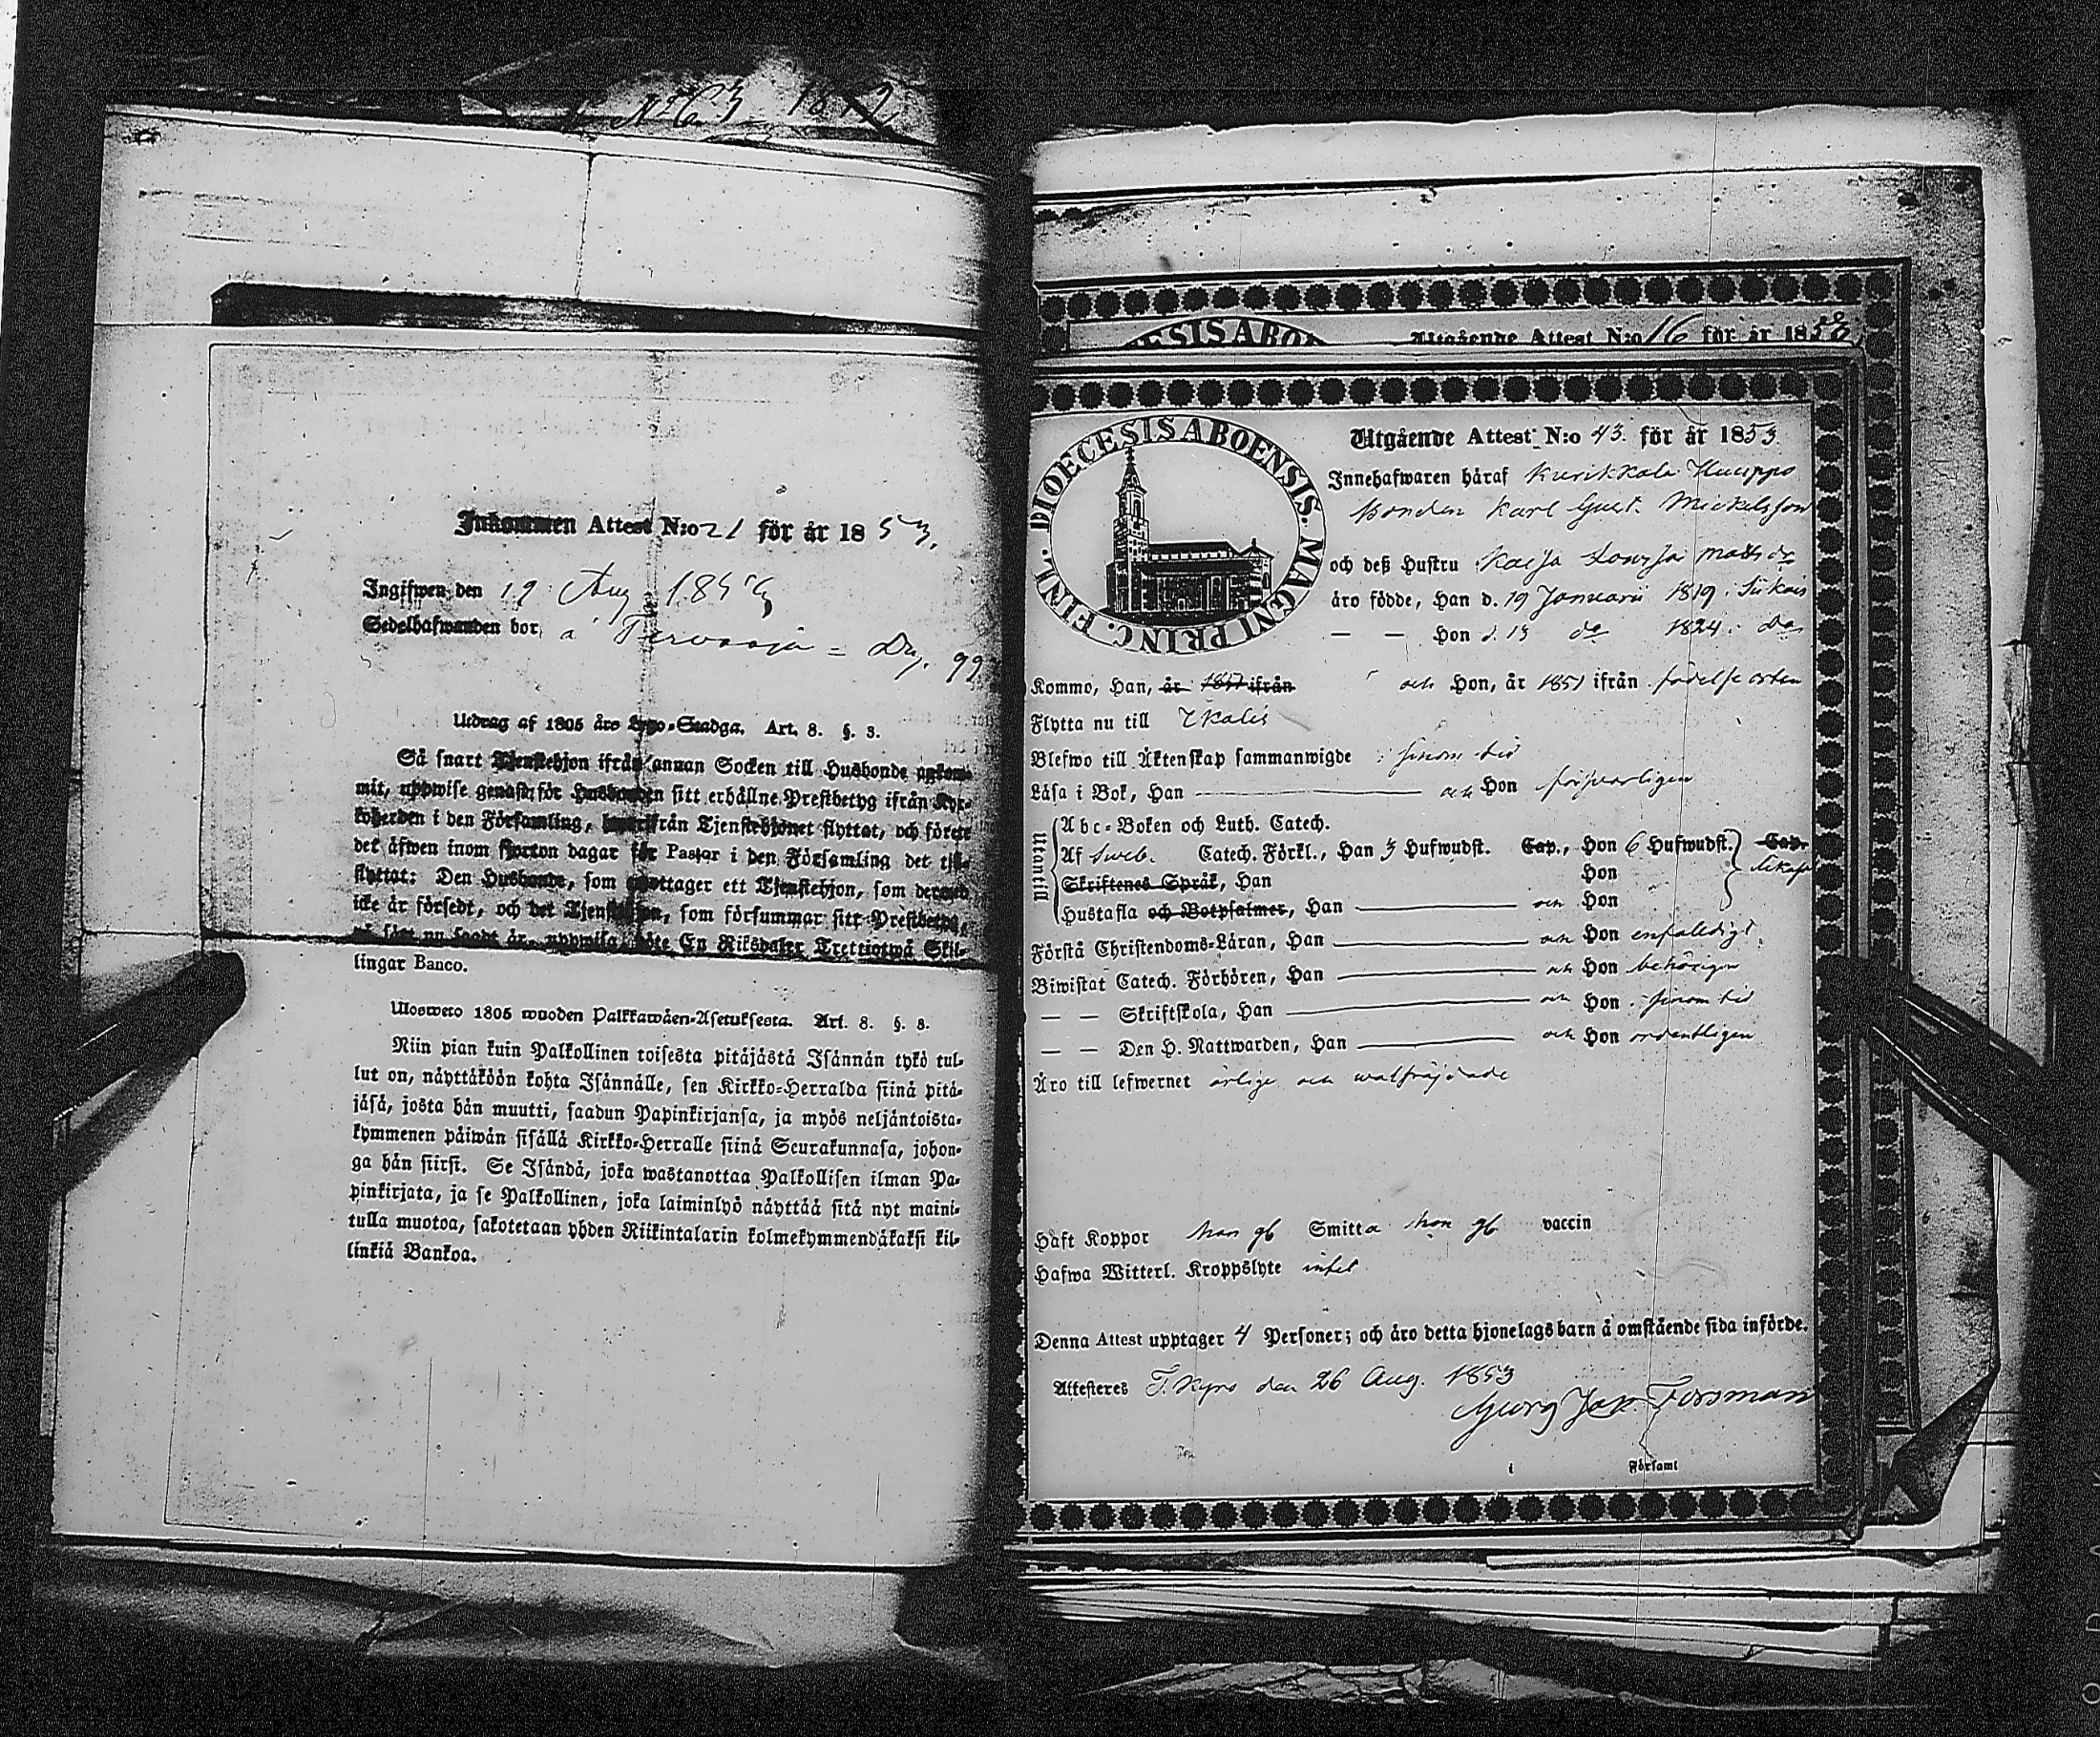 Inkommen Attest N:o 21 för år 1853.
Ingifwen den 19 Aug 185
Sedelhafwanden bor, å
Utdrag af 1805 års Lego-Stadga. Art. 8. §. 3.
Så snart Tjenstehjon ifrån annan Socken till Husbonde ankom-
mit, uppwise genast för Husbonden sitt erhållne Prestbetyg ifrån Kyr-
koherden i den Församling, hwarifrån Tjenstehjonet flyttat, och förete
det äfwen inom fjorton dagar för Pastor i den Församling det till-
flyttat: Den Husbonde, som emottager ett Tjenstehjon, som dermed
icke är försedt, och det Tjenstehjon, som försummar sitt Prestbetyg,
på sätt nu sagdt är, uppwisa, böte En Riksdaler Trettiotwå Skil-
lingar Banco.
Ulosweto 1805 wuoden Palkkawäen-Asetuksesta. Art. 8. §. 3.
Niin pian kuin Palkollinen toisesta pitäjästä Isännän tykö tul-
lut on, näyttäköön kohta Isännälle, sen Kirkko-Herralda siinä pitä-
jäsä, josta hän muutti, saadun Papinkirjansa, ja myös neljäntoista-
kymmenen päiwän sisällä Kirkko-Herralle siinä Seurakunnasa, johon-
ga hän siirsi. Se Isändä, joka wastanottaa Palkollisen ilman Pa-
pinkirjata, ja se Palkollinen, joka laiminlyö näyttää sitä nyt maini-
tulla muotoa, sakotetaan yhden Riikintalarin kolmekymmendäkaksi kil-
linkiä Bankoa.
Utgående Attest N:o 16 för år 185
DIOECESIS ABOENSIS. MAGNI PRINC. FINL.
Utgående Attest N:o 43. för år 1853.
Innehafwaren häraf Kurikkala
Bonden Karl Gust. Mickelsson
och deß Hustru Kaisa Lovisa Matsdr
äro födde, Han d. 19 Januarii 1819
— — Hon d. 15 do 1824. do
Kommo, Han, år 1851 ifrån och Hon, år 1851 ifrån födelse orten
Flytta nu till Ikalis
Blefwo till Äktenskap sammanwigde
Läsa i Bok, Han — och Hon försvarligen
Utantill
Abc-Boken och Luth. Catech.
Af Sweb. Catech. Förkl., Han 3 Hufwudst. Cap., Hon 6 Hufwudst. Cap.
Skriftenes Språk, Han Hon
Hustafla och Botpsalmer, Han — och Hon
Förstå Christendoms-Läran, Han — och Hon enfaldigt
Biwistat Catech. Förhören, Han — och Hon behörigen
— — Skriftskola, Han — och Hon
— — Den H. Nattwarden, Han — och Hon ordentligen
Äro till lefwernet ärlige och wälfräjdade
Haft Koppor Smitta vaccin
Hafwa Witterl. Kroppslyte intet
Denna Attest upptager 4 Personer; och äro detta hjonelags barn å omstående sida införde.
Attesteres T. Kyro den 26 Aug. 1853
Georg Jak. Forsman
i Församl